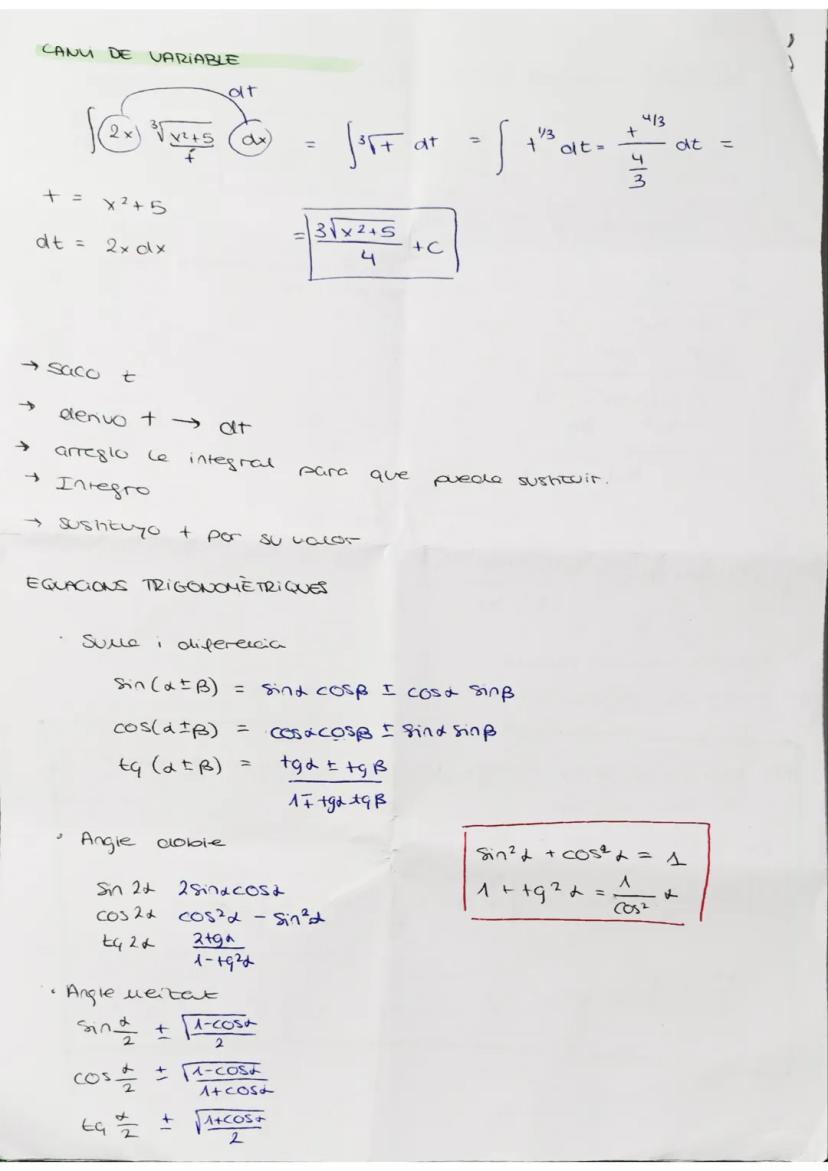 CANVI DE VARIABLE
dt
∫ 2x ∛(x²+5) dx = ∫ ∛t dt = ∫ t^(1/3) dt = t^(4/3) / (4/3) dt =
t
t = x²+5
dt = 2x dx
= 3√(x²+5) / 4 + C
→ saco t
→ derivo t → dt
→ arreglo la integral para que pueda sustituir.
→ Integro
→ sustituyo t por su valor
EQUACIONS TRIGONOMÈTRIQUES
· Suma i diferencia
sin(α±β) = sinα cosβ ± cosα sinβ
cos(α±β) = cosα cosβ ± sinα sinβ
tg(α±β) = (tgα ± tgβ) / (1 ∓ tgα tgβ)
· Angle doble
sin 2α 2sinα cosα
cos 2α cos²α - sin²α
tg 2α 2tgα / (1-tg²α)
sin²α + cos²α = 1
1 + tg²α = 1/cos² α
· Angle meitat
sin α/2 ± √(1-cosα)/2
cos α/2 ± √(1-cosα)/(1+cosα)
tg α/2 ± √(1+cosα)/2